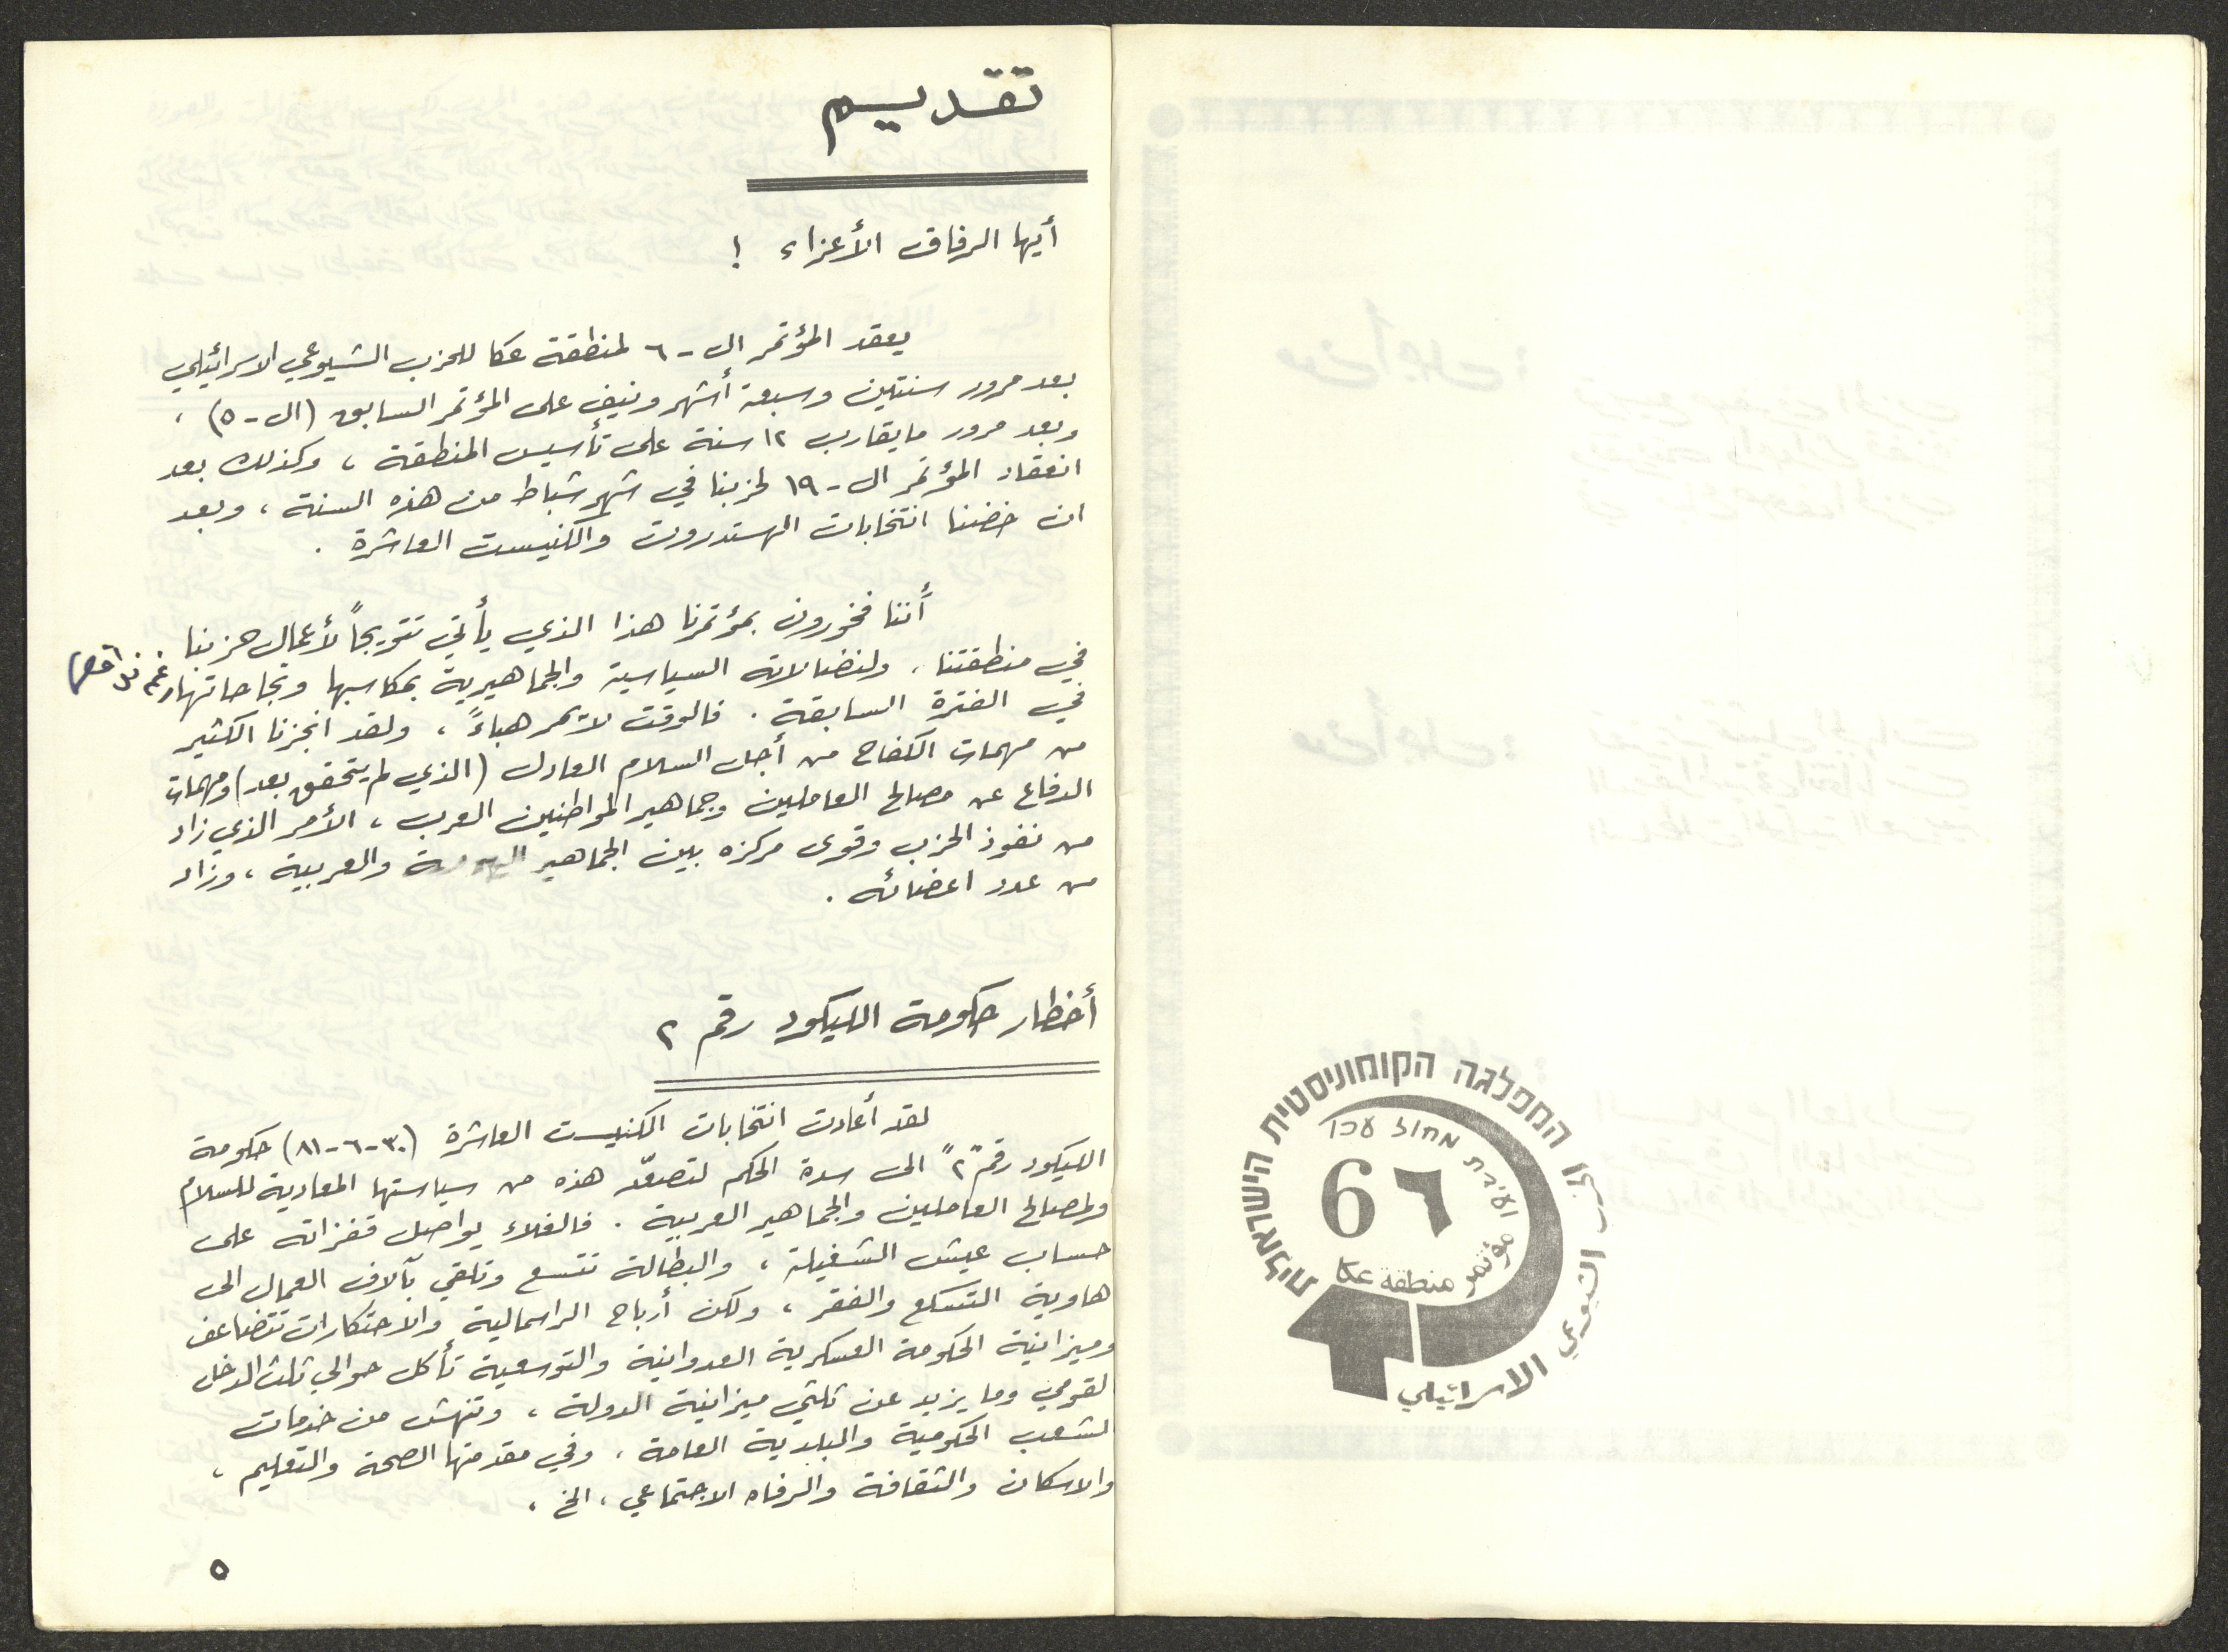 המפלגה הקומוניסטית הישראלית
ועידת מחוז עכו
6 ٦
مؤتمر منطقة عكا
الحزب الشيوعي الاسرائيلي
تقديم
أيها الرفاق الأعزاء !
يعقد المؤتمر ال-٦ لمنطقة عكا للحزب الشيوعي الاسرائيلي
بعد مرور سنتين وسبعة أشهر ونيف على المؤتمر السابق (ال-٥) ،
وبعد مرور ما يقارب ١٢ سنة على تأسيس المنطقة ، وكذلك بعد
انعقاد المؤتمر ال-١٩ لحزبنا في شهر شباط من هذه السنة ، وبعد
ان خضنا انتخابات الهستدروت والكنيست العاشرة .
أننا فخورون بمؤتمرنا هذا الذي يأتي تتويجاً لأعمال حزبنا
في منطقتنا ، ولنضالاته السياسية والجماهيرية بمكاسبها ونجاحاتها
في الفترة السابقة . فالوقت لا يمر هباءً ، ولقد انجزنا الكثير
من مهمات الكفاح من أجل السلام العادل (الذي لم يتحقق بعد) ومهمات
الدفاع عن مصالح العاملين وجماهير المواطنين العرب ، الأمر الذي زاد
من نفوذ الحزب وقوى مركزه بين الجماهير والعربية ، وزاد
من عدد اعضائه .
أخطار حكومة الليكود رقم ٢
لقد أعادت انتخابات الكنيست العاشرة (٣٠-٦-٨١) حكومة
الليكود رقم "٢" الى سدة الحكم لتصعّد هذه من سياستها المعادية للسلام
ولمصالح العاملين والجماهير العربية . فالغلاء يواصل قفزاته على
حساب عيش الشغيلة ، والبطالة تتسع وتلقي بآلاف العمال الى
هاوية التسكع والفقر ، ولكن أرباح الراسمالية والاحتكارات تتضاعف
وميزانية الحكومة العسكرية العدوانية والتوسعية تأكل حوالي ثلث الدخل
لقومي وما يزيد عن ثلثي ميزانية الدولة ، وتنهش من خدمات
لشعب الحكومية والبلدية العامة ، وفي مقدمتها الصحة والتعليم ،
والاسكان والثقافة والرفاه الاجتماعي ، الخ .
٥